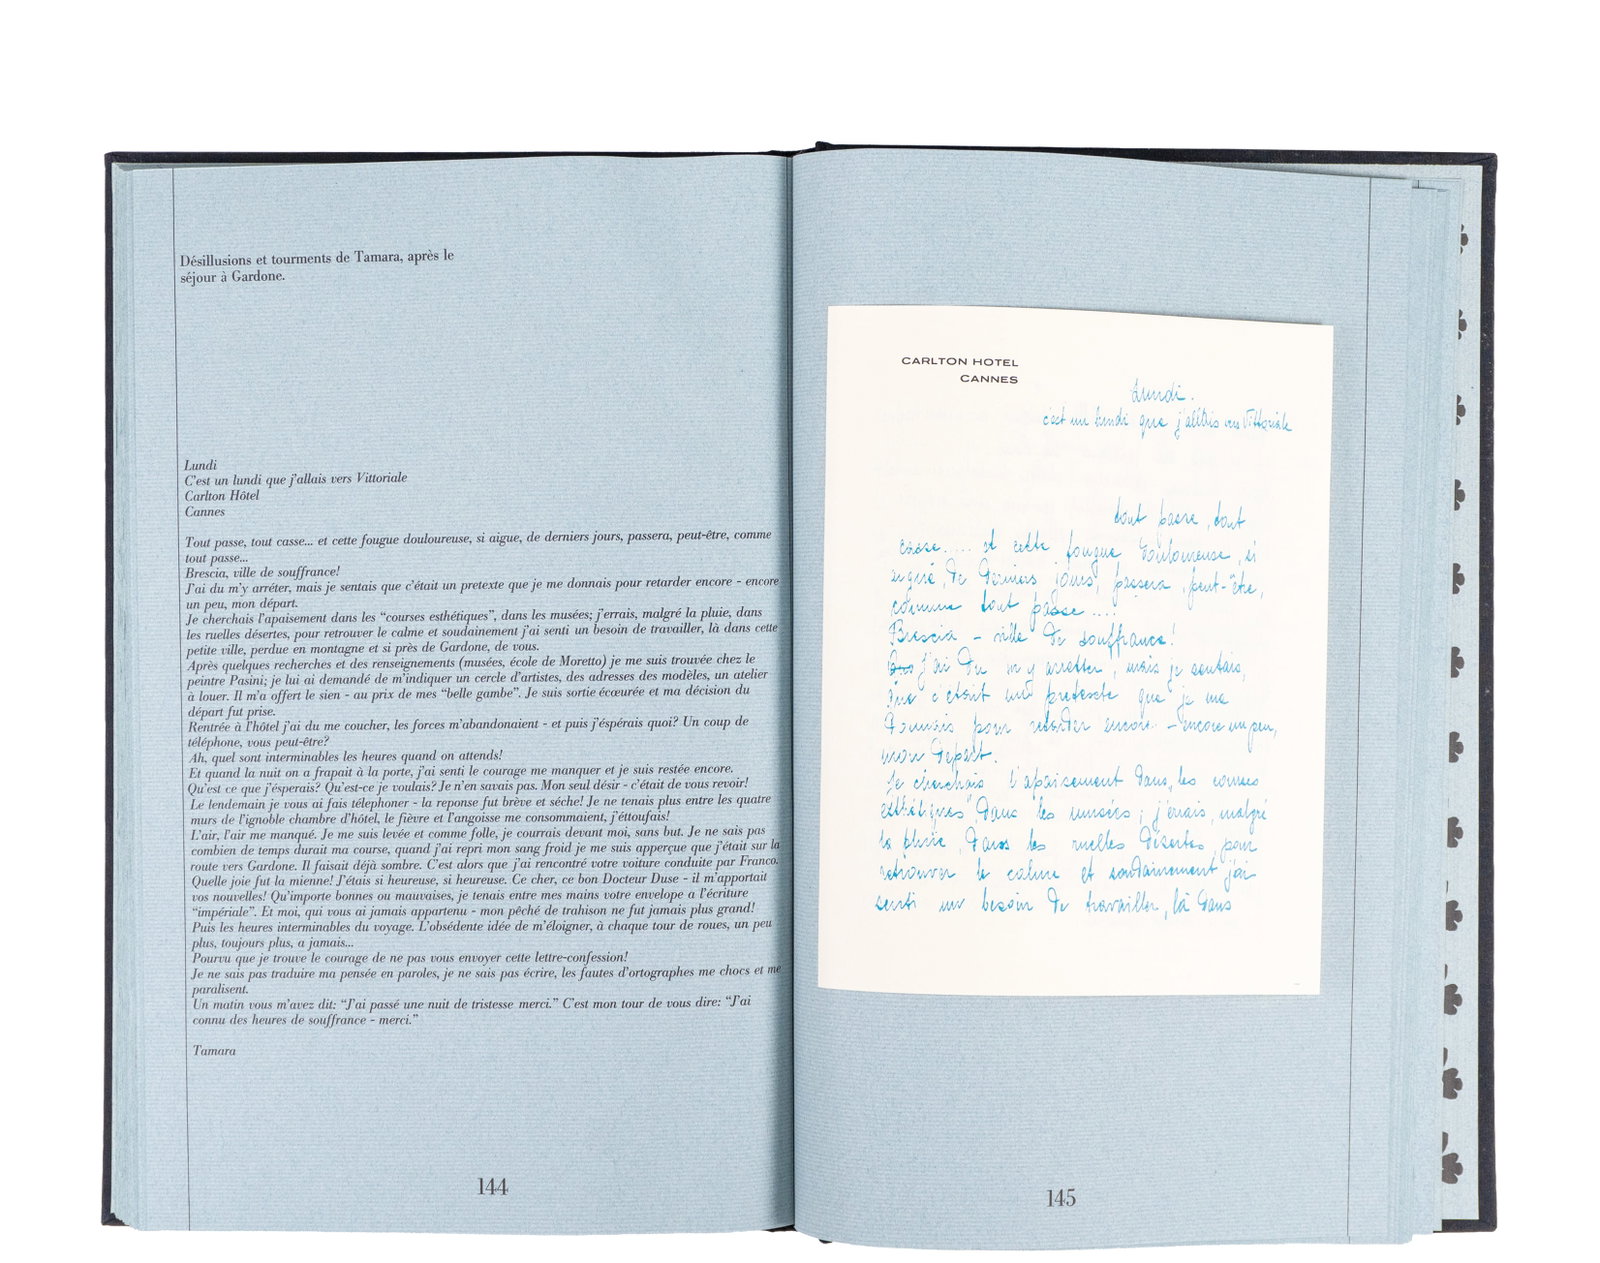 Désillusions et tourments de Tamara, après le
séjour à Gardone.
Lundi
C'est un lundi que j'allais vers Vittoriale
Carlton Hôtel
Cannes
Tout passe, tout casse... et cette fougue douloureuse, si aigue, de derniers jours, passera, peut-être, comme
tout passe...
Brescia, ville de souffrance!
J'ai du m'y arréter, mais je sentais que c'était un pretexte que je me donnais pour retarder encore - encore
un peu, mon départ.
Je cherchais l'apaisement dans les "courses esthétiques", dans les musées; j'errais, malgré la pluie, dans
les ruelles désertes, pour retrouver le calme et soudainement j'ai senti un besoin de travailler, là dans cette
petite ville, perdue en montagne et si près de Gardone, de vous.
Après quelques recherches et des renseignements (musées, école de Moretto) je me suis trouvée chez le
peintre Pasini; je lui ai demandé de m'indiquer un cercle d'artistes, des adresses des modèles, un atelier
à louer. Il m'a offert le sien - au prix de mes "belle gambe". Je suis sortie écœurée et ma décision du
départ fut prise.
Rentrée à l'hôtel j'ai du me coucher, les forces m'abandonaient - et puis j'éspérais quoi? Un coup de
téléphone, vous peut-être?
Ah, quel sont interminables les heures quand on attends!
Et quand la nuit on a frapait à la porte, j'ai senti le courage me manquer et je suis restée encore.
Qu'est ce que j'ésperais? Qu'est-ce je voulais? Je n'en savais pas. Mon seul désir - c'était de vous revoir!
Le lendemain je vous ai fais télephoner - la reponse fut brève et séche! Je ne tenais plus entre les quatre
murs de l'ignoble chambre d'hôtel, le fièvre et l'angoisse me consommaient, j'éttoufais!
L'air, l'air me manqué. Je me suis levée et comme folle, je courrais devant moi, sans but. Je ne sais pas
combien de temps durait ma course, quand j'ai repri mon sang froid je me suis apperçue que j'était sur la
route vers Gardone. Il faisait déjà sombre. C'est alors que j'ai rencontré votre voiture conduite par Franco.
Quelle joie fut la mienne! J'étais si heureuse, si heureuse. Ce cher, ce bon Docteur Duse - il m'apportait
vos nouvelles! Qu'importe bonnes ou mauvaises, je tenais entre mes mains votre envelope a l'écriture
"impériale". Et moi, qui vous ai jamais appartenu - mon pêché de trahison ne fut jamais plus grand!
Puis les heures interminables du voyage. L'obsédente idée de m'éloigner, à chaque tour de roues, un peu
plus, toujours plus, a jamais...
Pourvu que je trouve le courage de ne pas vous envoyer cette lettre-confession!
Je ne sais pas traduire ma pensée en paroles, je ne sais pas écrire, les fautes d'ortographes me chocs et me
paralisent.
Un matin vous m'avez dit: "J'ai passé une nuit de tristesse merci." C'est mon tour de vous dire: "J'ai
connu des heures de souffrance - merci."
Tamara
144
CARLTON HOTEL
CANNES
Lundi.
c'est un lundi que j'allais vers Vittoriale
tout passe, tout
casse..... et cette fougue douloureuse, si
aigue, de derniers jours, passera, peut-être,
comme tout passe....
Brescia - ville de souffrance!
j'ai du m'y arretter, mais je sentais,
que c'était un pretexte que je me
donnais pour retarder encore - encore un peu,
mon depart.
Je cherchais l'apaisement dans "les courses
esthétiques", dans les musées; j'errais, malgré
la pluie, dans les ruelles désertes, pour
retrouver le calme et soudainement j'ai
senti un besoin de travailler, là dans
145